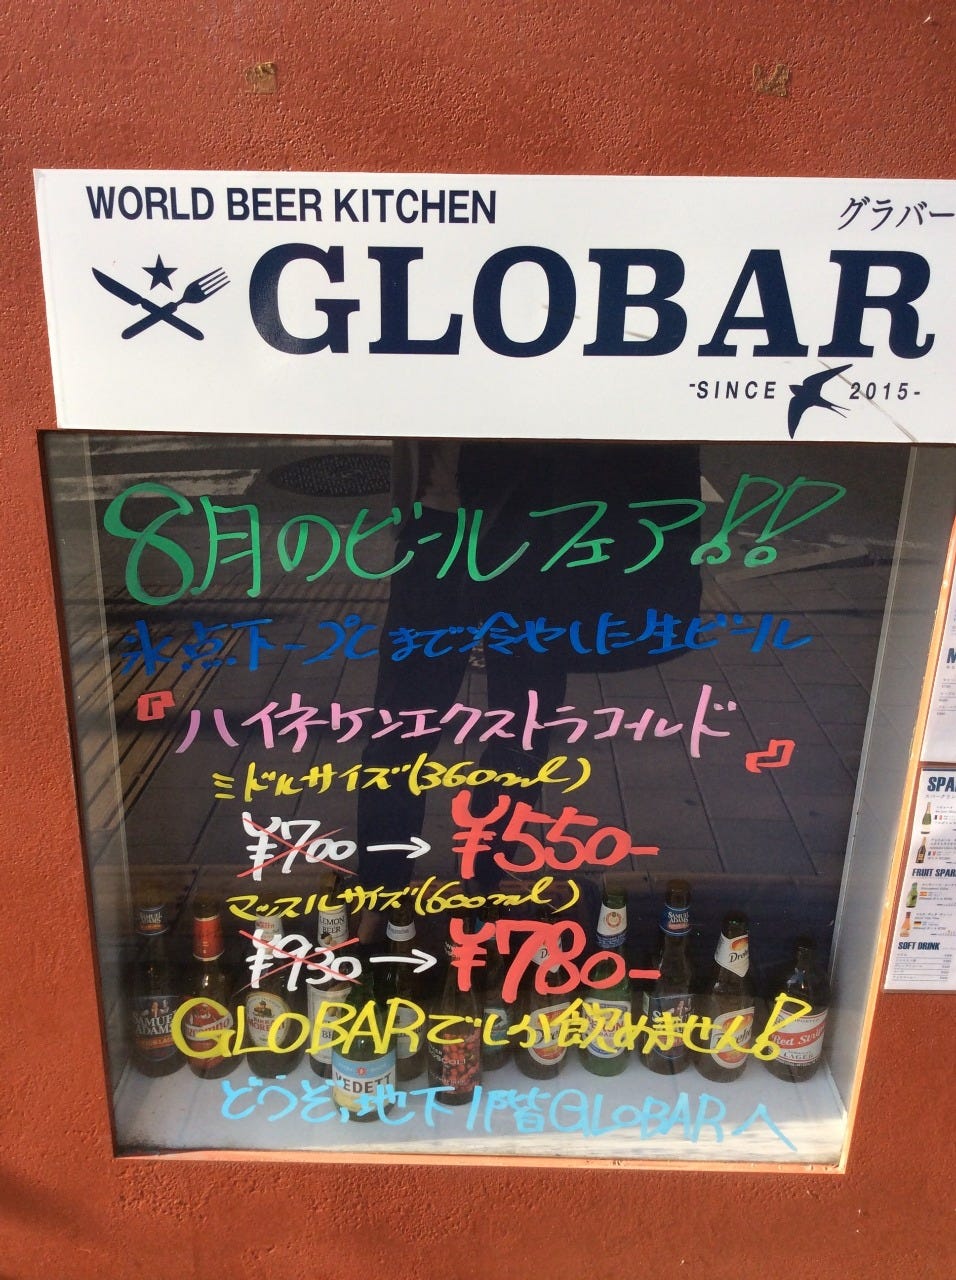 WORLD BEER KITCHEN
グラバー
GLOBAR
-SINCE 2015-
8月のビールフェア!!
氷点下-2℃まで冷やした生ビール
『ハイネケンエクストラコールド』
ミドルサイズ(360ml)
¥700→¥550-
マッスルサイズ(600ml)
¥930→¥780-
GLOBARでしか飲めません!
どうぞ、地下1階GLOBARへ
SAMUEL ADAMS
LEMON BEER
VEDETT
SAMUEL ADAMS
Red Stripe
LAGER
FRUIT SPAR
SOFT DRINK